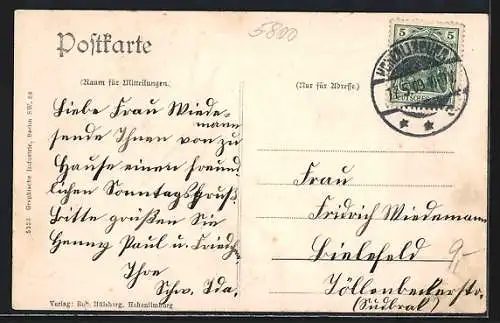 5800
Postkarte
(Raum für Mitteilungen.
(Nur für Adresse.)
5
13.5.09
Liebe Frau Wiede-
mann
sende Ihnen von zu
Hause einen freund
lichen Sonntagsgruß
Bitte grüßen Sie
Henny Paul u. Friedchen
Ihre
Schw. Ida.
Frau
Fridrich Wiedemann
Bielefeld
Töllenbeckerstr.
(Sudbrak)
9,-
5323 Graphische Industrie, Berlin SW. 68
Verlag: Rob. Hülsberg, Hohenlimburg